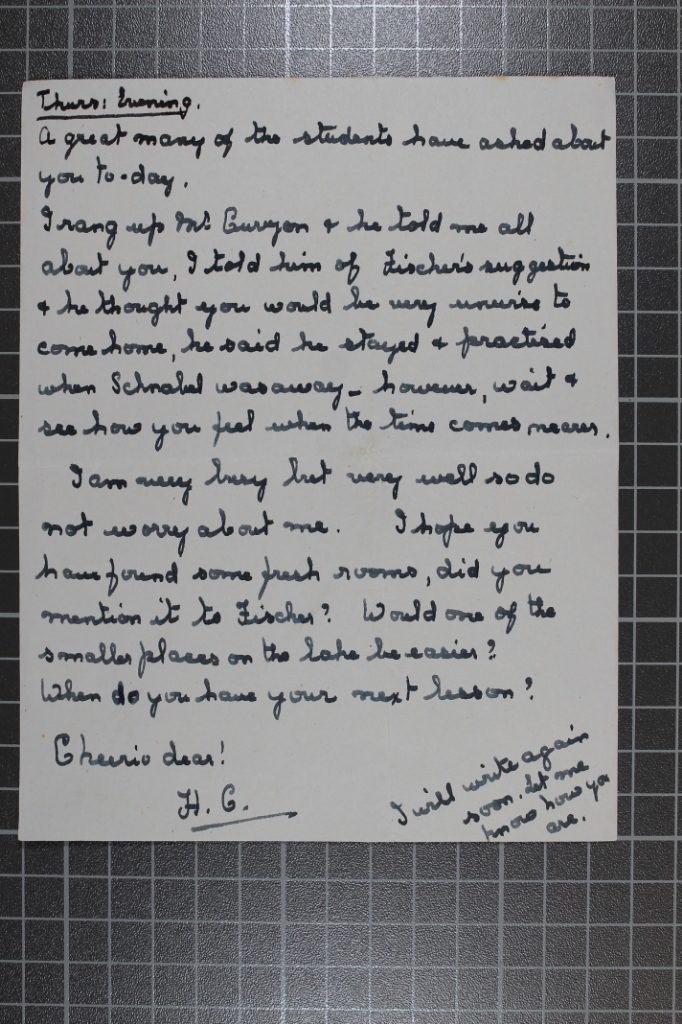 Thurs: Evening.
A great many of the students have asked about
you to-day.
I rang up Mr. Curzon & he told me all
about you, I told him of Fischer's suggestion
& he thought you would be very unwise to
come home, he said he stayed & practised
when Schnabel was away - however, wait &
see how you feel when the time comes nearer.
I am very busy but very well so do
not worry about me. I hope you
have found some fresh rooms, did you
mention it to Fischer? Would one of the
smaller places on the lake be easier?
When do you have your next lesson?
Cheerio dear!
H. C.
I will write again
soon. Let me
know how you
are.